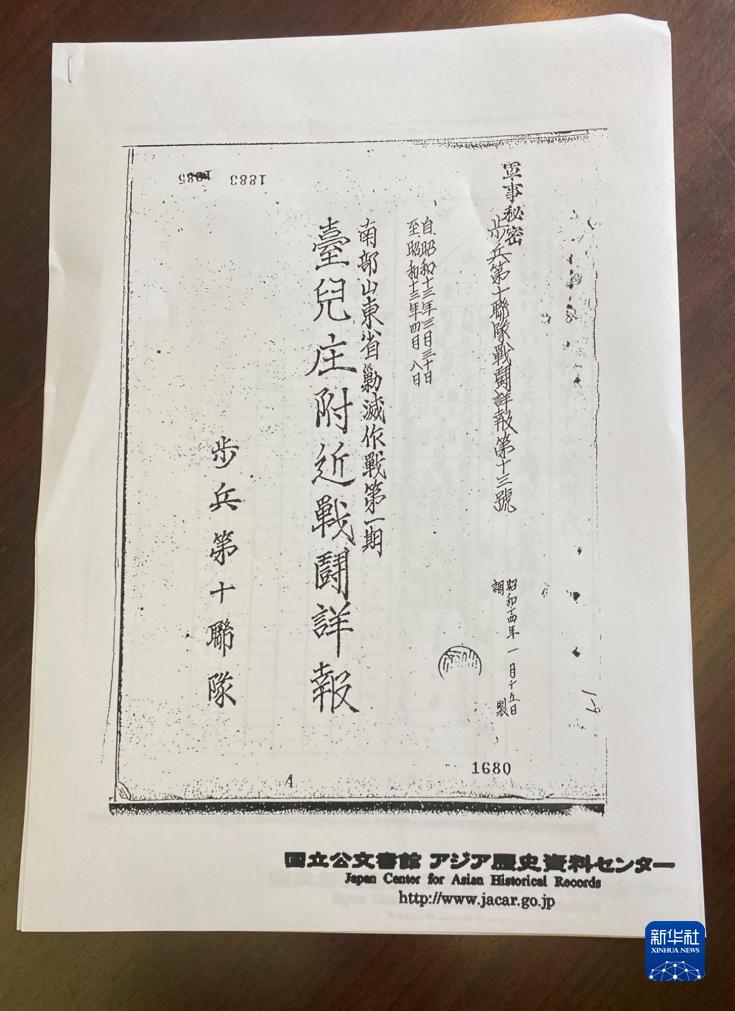 軍事秘密
步兵第十聯隊戰鬪詳報第十三號
昭和十四年一月十五日
調製
自昭和十三年三月三十日
至昭和十三年四月八日
南部山東省剿滅作戰第一期
臺兒庄附近戰鬪詳報
步兵第十聯隊
1883
1680
A
国立公文書館 アジア歴史資料センター
Japan Center for Asian Historical Records
http://www.jacar.go.jp
新华社
XINHUA NEWS